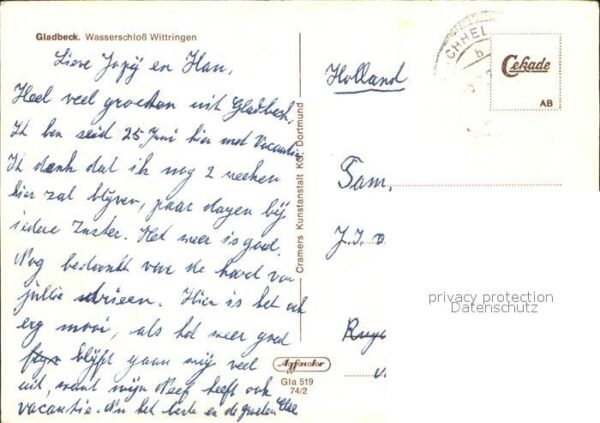 Gladbeck. Wasserschloß Wittringen
Lieve Jopij en Han,
Heel veel groeten uit Gladbeck,
Ik ben seid 25 Juni hier met Vacantie
Ik denk dat ik nog 2 weeken
hier zal blijven, paar dagen bij
iedere Zuster. Het weer is goed.
Nog bedankt voor de kaard van
jullie. Hier is het ook
erg mooi, als het weer goed
blijft gaan wij veel
uit, want mijn Neef heeft ook
vacantie. het beste en de groeten Else
Cramers Kunstanstalt KG, Dortmund
Agfacolor
Gla 519
74/2
CHHEL
h
Cekade
AB
Holland
Fam,
J.J. v
privacy protection
Datenschutz